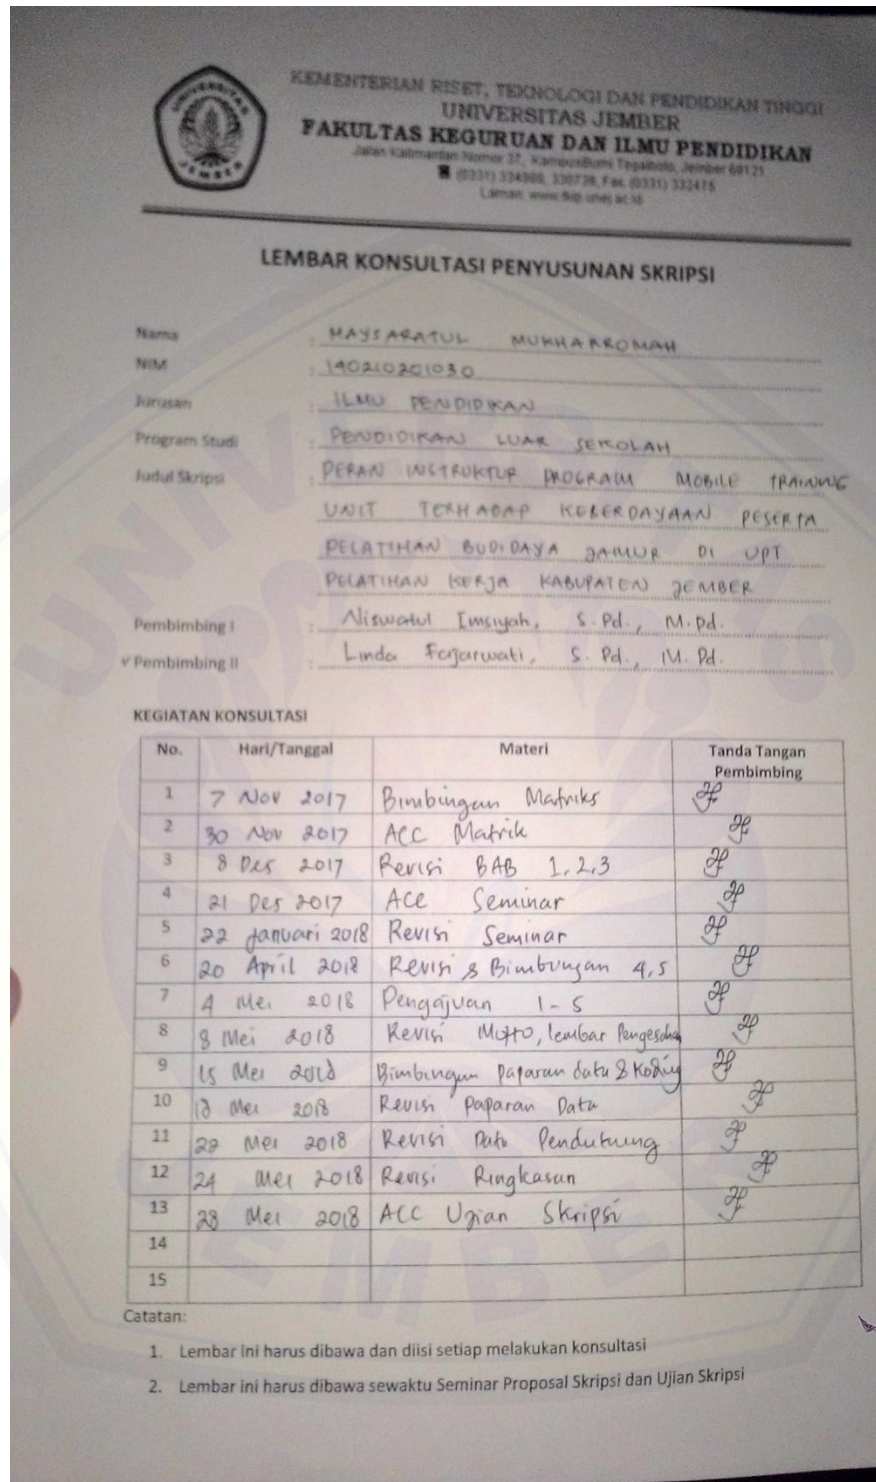 UNIVERSITAS
JEMBER
KEMENTERIAN RISET, TEKNOLOGI DAN PENDIDIKAN TINGGI
UNIVERSITAS JEMBER
FAKULTAS KEGURUAN DAN ILMU PENDIDIKAN
Jalan Kalimantan Nomor 37, KampusBumi Tegalboto, Jember 68121
(0331) 334988, 330738, Fax. (0331) 332475
Laman: www.fkip.unej.ac.id
LEMBAR KONSULTASI PENYUSUNAN SKRIPSI
Nama : MAYSARATUL MUKHARROMAH
NIM : 140210201030
Jurusan : ILMU PENDIDIKAN
Program Studi : PENDIDIKAN LUAR SEKOLAH
Judul Skripsi : PERAN INSTRUKTUR PROGRAM MOBILE TRAINING
UNIT TERHADAP KEBERDAYAAN PESERTA
PELATIHAN BUDIDAYA JAMUR DI UPT
PELATIHAN KERJA KABUPATEN JEMBER
Pembimbing I : Niswatul Imsiyah, S.Pd., M.Pd.
√ Pembimbing II : Linda Fajarwati, S.Pd., M.Pd.
KEGIATAN KONSULTASI
No. Hari/Tanggal Materi Tanda Tangan Pembimbing
1 7 Nov 2017 Bimbingan Matriks
2 30 Nov 2017 ACC Matrik
3 8 Des 2017 Revisi BAB 1,2,3
4 21 Des 2017 Acc Seminar
5 22 Januari 2018 Revisi Seminar
6 20 April 2018 Revisi & Bimbingan 4,5
7 4 Mei 2018 Pengajuan 1-5
8 8 Mei 2018 Revisi Motto, lembar Pengesahan
9 15 Mei 2018 Bimbingan paparan data & Koding
10 18 Mei 2018 Revisi Paparan Data
11 22 Mei 2018 Revisi Data Pendukung
12 24 Mei 2018 Revisi Ringkasan
13 28 Mei 2018 ACC Ujian Skripsi
14
15
Catatan:
1. Lembar ini harus dibawa dan diisi setiap melakukan konsultasi
2. Lembar ini harus dibawa sewaktu Seminar Proposal Skripsi dan Ujian Skripsi